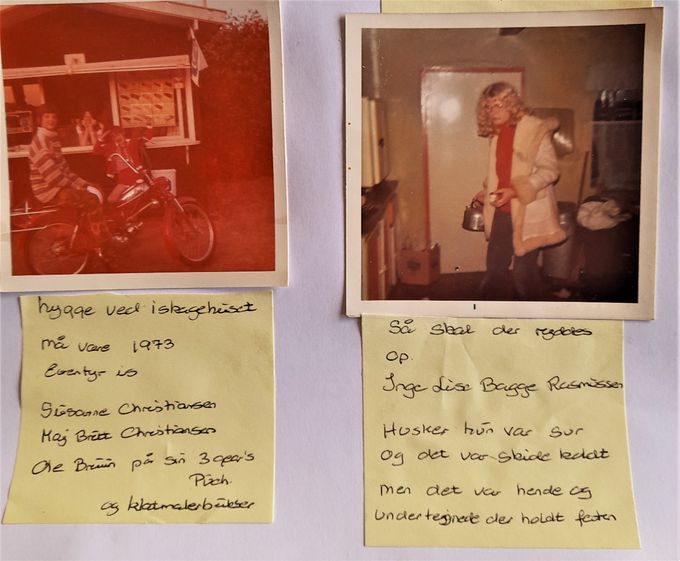 hygge ved iskagehuset
må være 1973
Eventyr is
Susanne Christiansen
Maj Britt Christiansen
Ole Bruun på sin 3 gear's
Puch.
og klatmalerbukser
Så skal der ryddes
op.
Inge Lise Bagge Rasmussen
Husker hun var sur
og det var skide koldt
men det var hende og
undertegnede der holdt festen